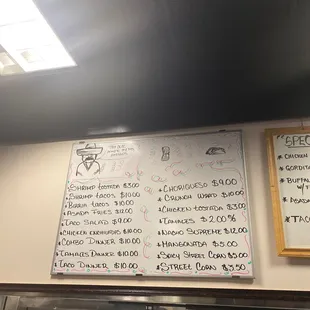 *Shrimp tostada $3.00
Shrimp tacos $10.00
Birria tacos $10.00
Asada Fries $12.00
Taco Salad $9.00
*Chicken enchiladas $10.00
Combo Dinner $10.00
*Tamales Dinner $10.00
*Taco Dinner $10.00
*Choriqueso $9.00
*Crunch Wrap $10.00
*Chicken tostada $3.00
*Tamales $2.00
*Nacho Supreme $12.00
*Mangonada $5.00
*Spicy Street Corn $5.00
*Street Corn $3.50
"SPEC
*Chicken
*Gordit
*Buffa
*Taco